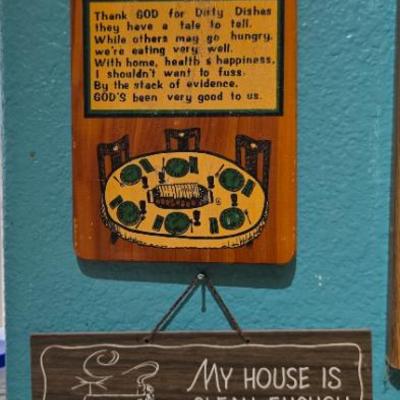 Thank GOD for Dirty Dishes
they have a tale to tell.
While others may go hungry,
we're eating very well.
With home, health & happiness,
I shouldn't want to fuss.
By the stack of evidence,
GOD'S been very good to us.
MY HOUSE IS
CLEAN ENOUGH